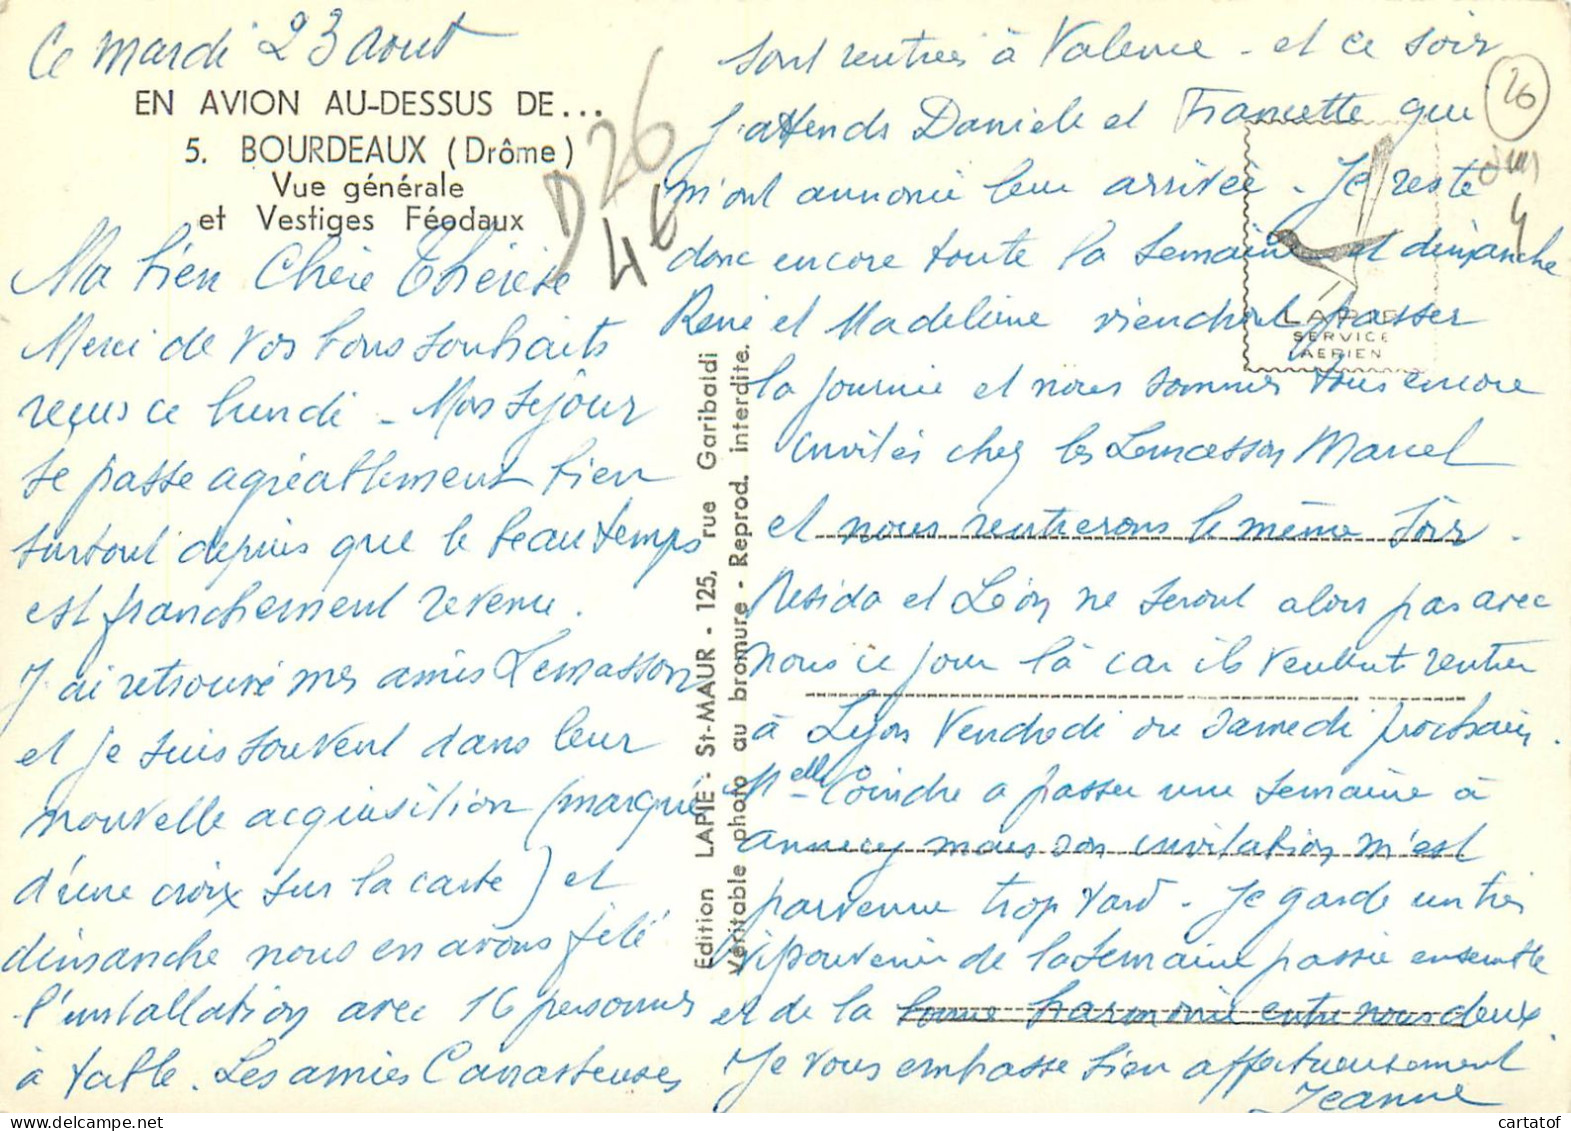 Ce Mardi 23 Aout
EN AVION AU-DESSUS DE...
5. BOURDEAUX (Drôme)
Vue générale
et Vestiges Féodaux
D26
4€
Ma bien Chère Thérèse
Merci de vos bons souhaits
reçus ce lundi - Mon séjour
se passe agréablement bien
surtout depuis que le beau temps
est franchement revenu.
J'ai retrouvé mes amis Lemasson
et je suis souvent dans leur
nouvelle acquisition (marqué
d'une croix sur la carte) et
dimanche nous en avons fêté
l'installation avec 16 personnes
à table. Les amies
Edition LAPIE - St-MAUR - 125, rue Garibaldi
Véritable photo au bromure - Reprod. interdite.
sont rentrées à Valence - et ce soir
j'attends Daniele et Francette qui
m'ont annoncé leur arrivée - Je reste
donc encore toute la semaine et dimanche
René et Madeleine viendront passer
la journée et nous sommes tous encore
invités chez les Marcel
et nous rentrerons le même soir.
et Léon ne seront alors pas avec
nous ce jour là car ils veulent rentrer
à Lyon Vendredi ou Samedi prochain.
Melle Coindre a passer une semaine à
annecy mais son invitation m'est
parvenue trop tard - Je garde un très
souvenir de la semaine passée ensemble
et de la bonne harmonie entre nous deux.
Je vous embrasse bien affectueusement
Jeanne
26
4
LAPIE
SERVICE
AERIEN
cartatof